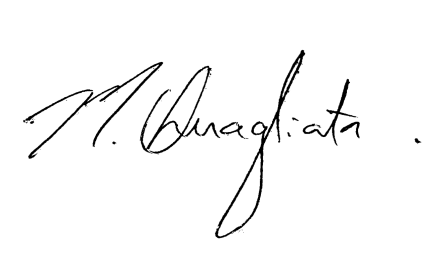 M. Quagliata .